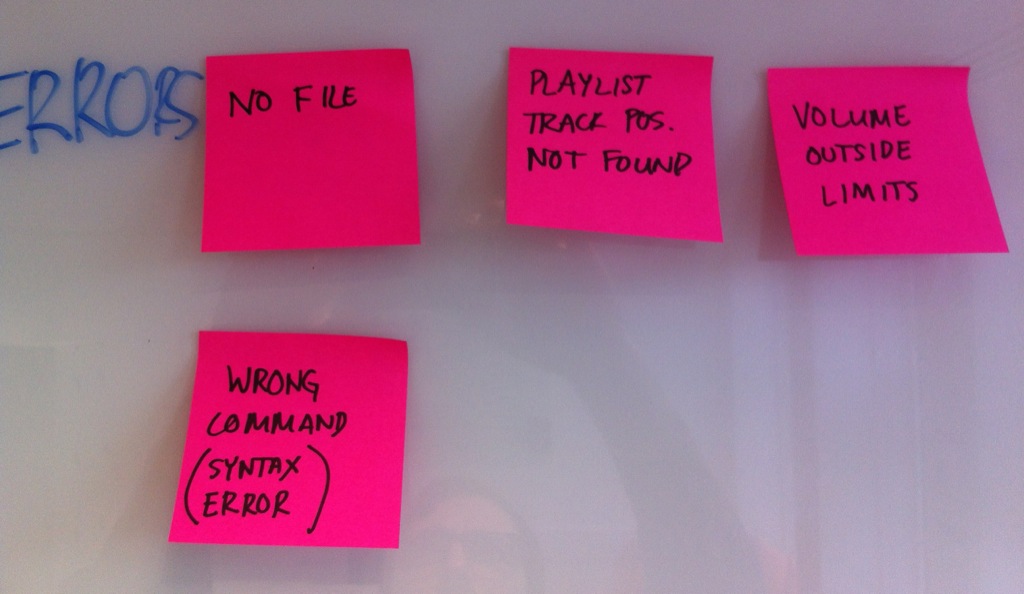 ERRORS
NO FILE
PLAYLIST
TRACK POS.
NOT FOUND
VOLUME
OUTSIDE
LIMITS
WRONG
COMMAND
(SYNTAX
ERROR)